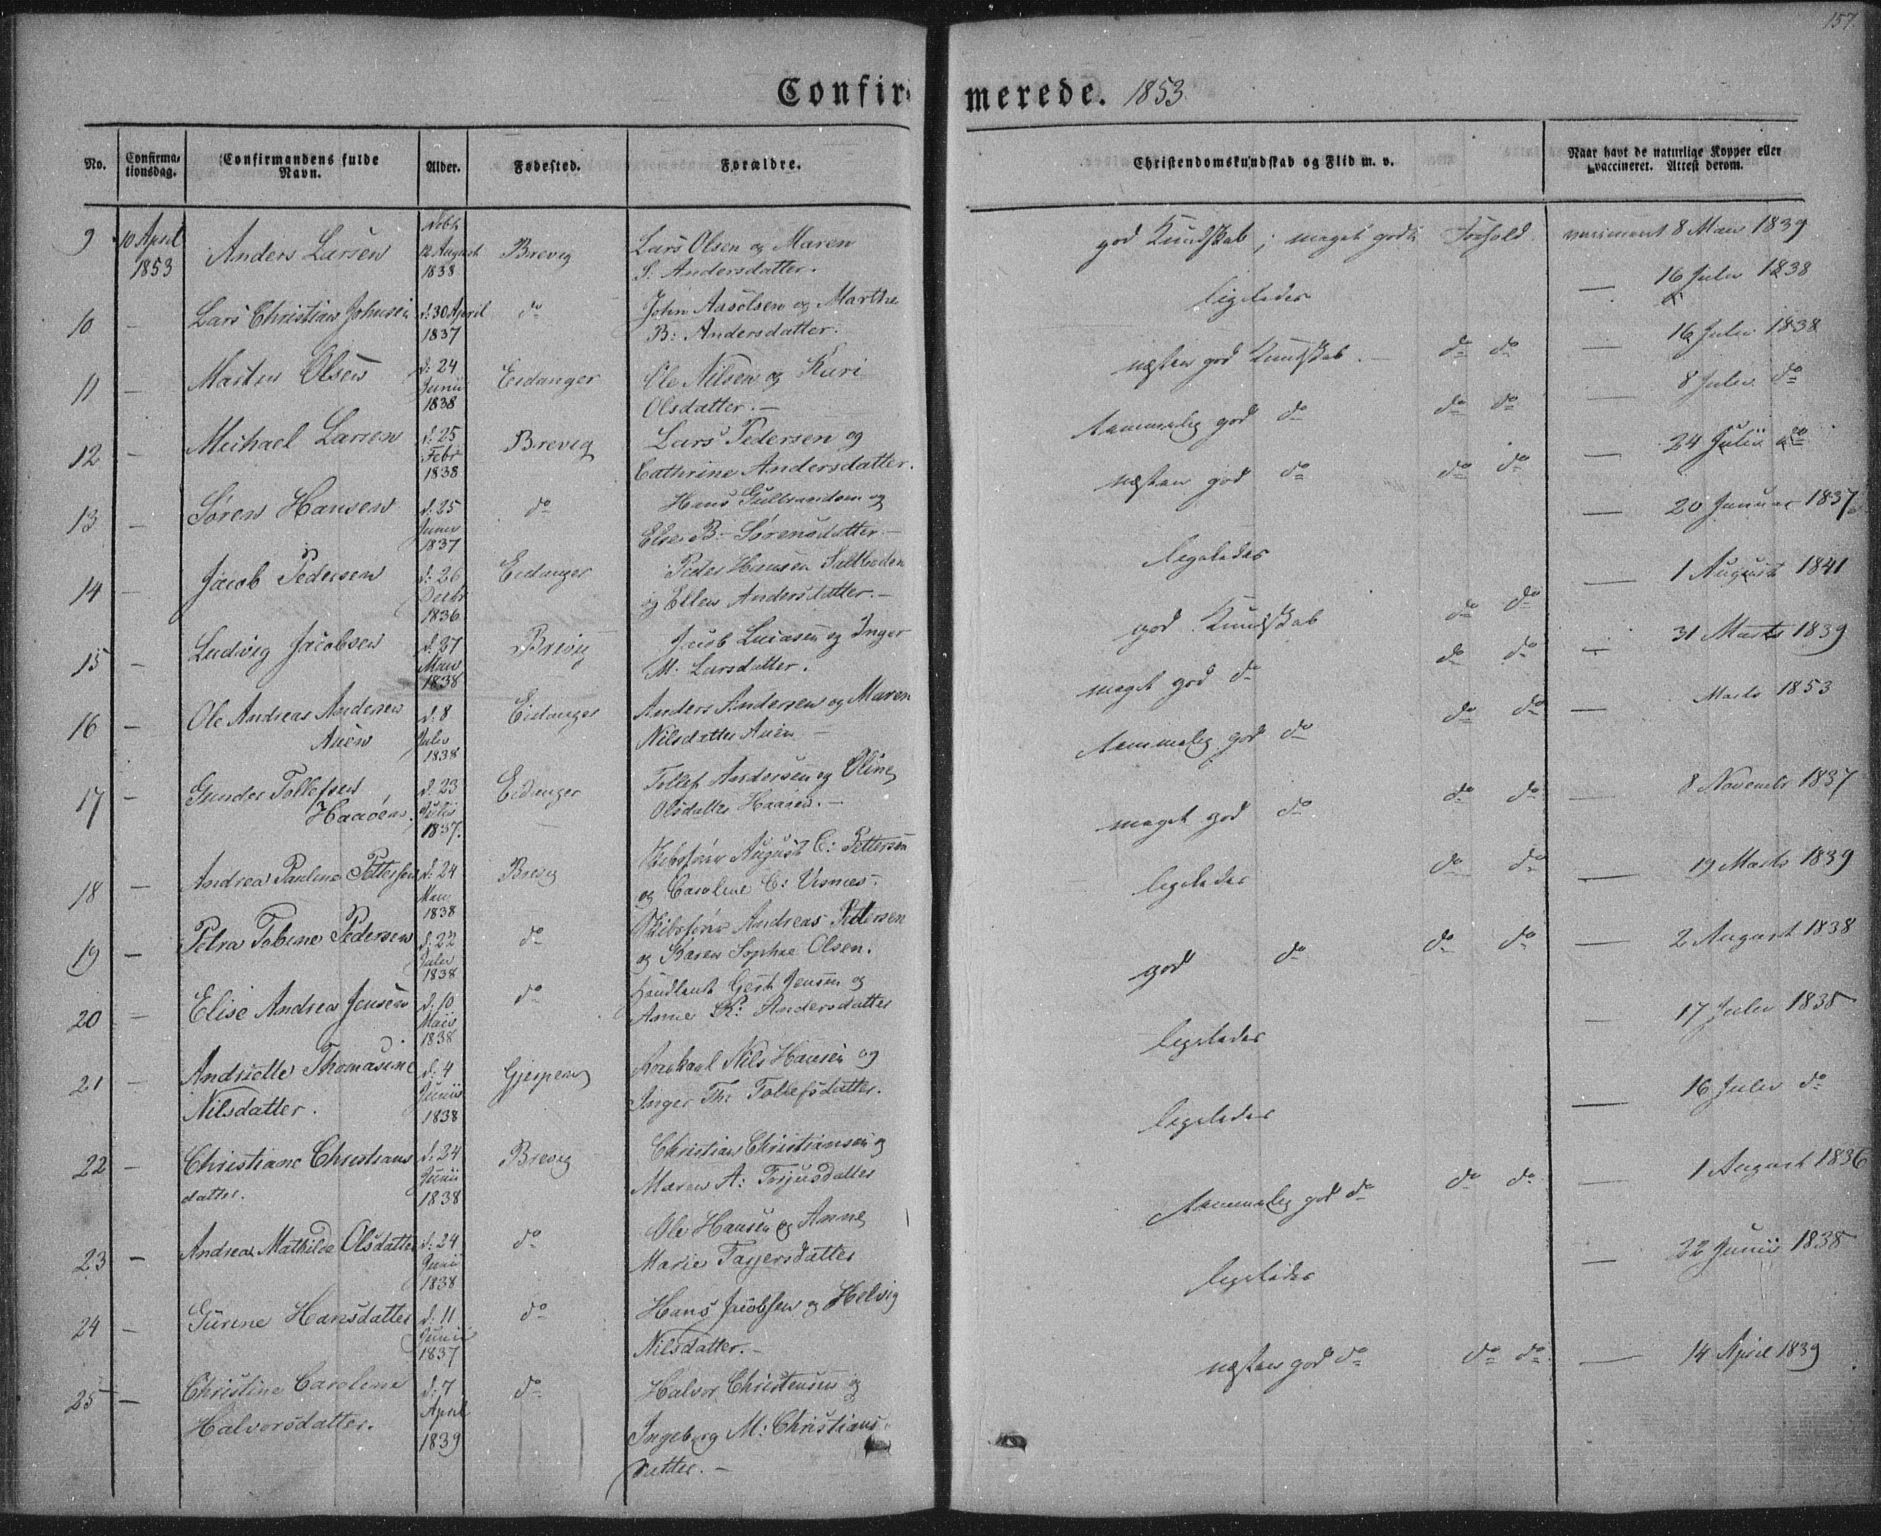 157.
Confirmerede. 1853
No. Confirmationsdag. Confirmandens fulde Navn. Alder. Fødested. Forældre. Christendomskundskab og Flid m. v. Naar havt de naturlige Kopper eller vaccineret. Attest derom.
9 10 April 1853 Anders Larsen 12 August 1838 Brevig Lars Olsen og Maren S: Andersdatter. god Kundskab; meget godt Forhold 8 Mai 1839
10 — Lars Christian Johnsen d: 30 April 1837 do John Aasolsen og Marthe B: Andersdatter. ligeledes — 16 Julii 1838
11 — Morten Olsen d: 24 Junii 1838 Eidanger Ole Nilsen og Kari Olsdatter. — næsten god Kundskab. — do do — 16 Julii 1838
12 — Michael Larsen d: 25 Febr 1838 Brevig Lars Pedersen og Cathrine Andersdatter. temmelig god do do do — 8 Julii do
13 — Søren Hansen d: 25 1837 do Hans Gulbrandsen og Else B. Sørensdatter — næsten god do do do — 24 Julii do
14 — Jacob Pedersen d: 26 Decbr 1836 Eidanger Peder Hansen Saltboden og Ellen Andersdatter. — ligeledes — 20 Januar 1837
15 — Ludvig Jacobsen d: 27 Mai 1838 Brevig Jacob Lucasen og Inger M. Larsdatter. god Kundskab do do — 1 August 1841
16 — Ole Andreas Andersen Auen d: 8 Julii 1838 Eidanger Anders Andersen og Maren Nilsdatter Auen — meget god do do do — 31 Marts 1839
17 — Gunder Tollefsen Haaøen. d: 23 Julii 1837. Eidanger Tollef Andersen og Oline Olsdatter Haaøen. — temmelig god do do do — Marts 1853
18 — Andrea Pauline Pettersen d: 24 Mai 1838 Brevig Skibsfører August C: Pettersen og Caroline C: Visnes. meget god do do do — 8 Novembr 1837
19 — Petra Tobine Pedersen d: 22 Julii 1838 do Skibsfører Andreas Pettersen og Karen Sophie Olsen. ligeledes do do — 19 Marts 1839
20 — Elise Andrea Jensen d: 10 Maii 1838 do Gert Jensen og Anne K: Andersdatter god do do do — 2 August 1838
21 — Andrielle Thomasine Nilsdatter. d: 4 Junii 1838 Gjerpen Nils Hansen og Inger Th: Tollefsdatter. ligeledes — 17 Julii 1838
22 — Christiane Christiansdatter. d: 24 Junii 1838 Brevig Christian Christiansen og Maren A: Terjusdatter ligeledes — 16 Julii do
23 — Andrea Mathilde Olsdatter d: 24 Junii 1838 do Ole Hansen og Anne Marie Tarjersdatter temmelig god do do do — 1 August 1836
24 — Gurine Hansdatter d: 11 Junii 1837 do Hans Jacobsen og Helvig Nilsdatter. — ligeledes — 22 Junii 1838
25 — Christine Caroline Halvorsdatter. d: 7 April 1839 do Halvor Christensen og Ingeborg M: Christiansdatter. — næsten god do do do — 14 April 1839